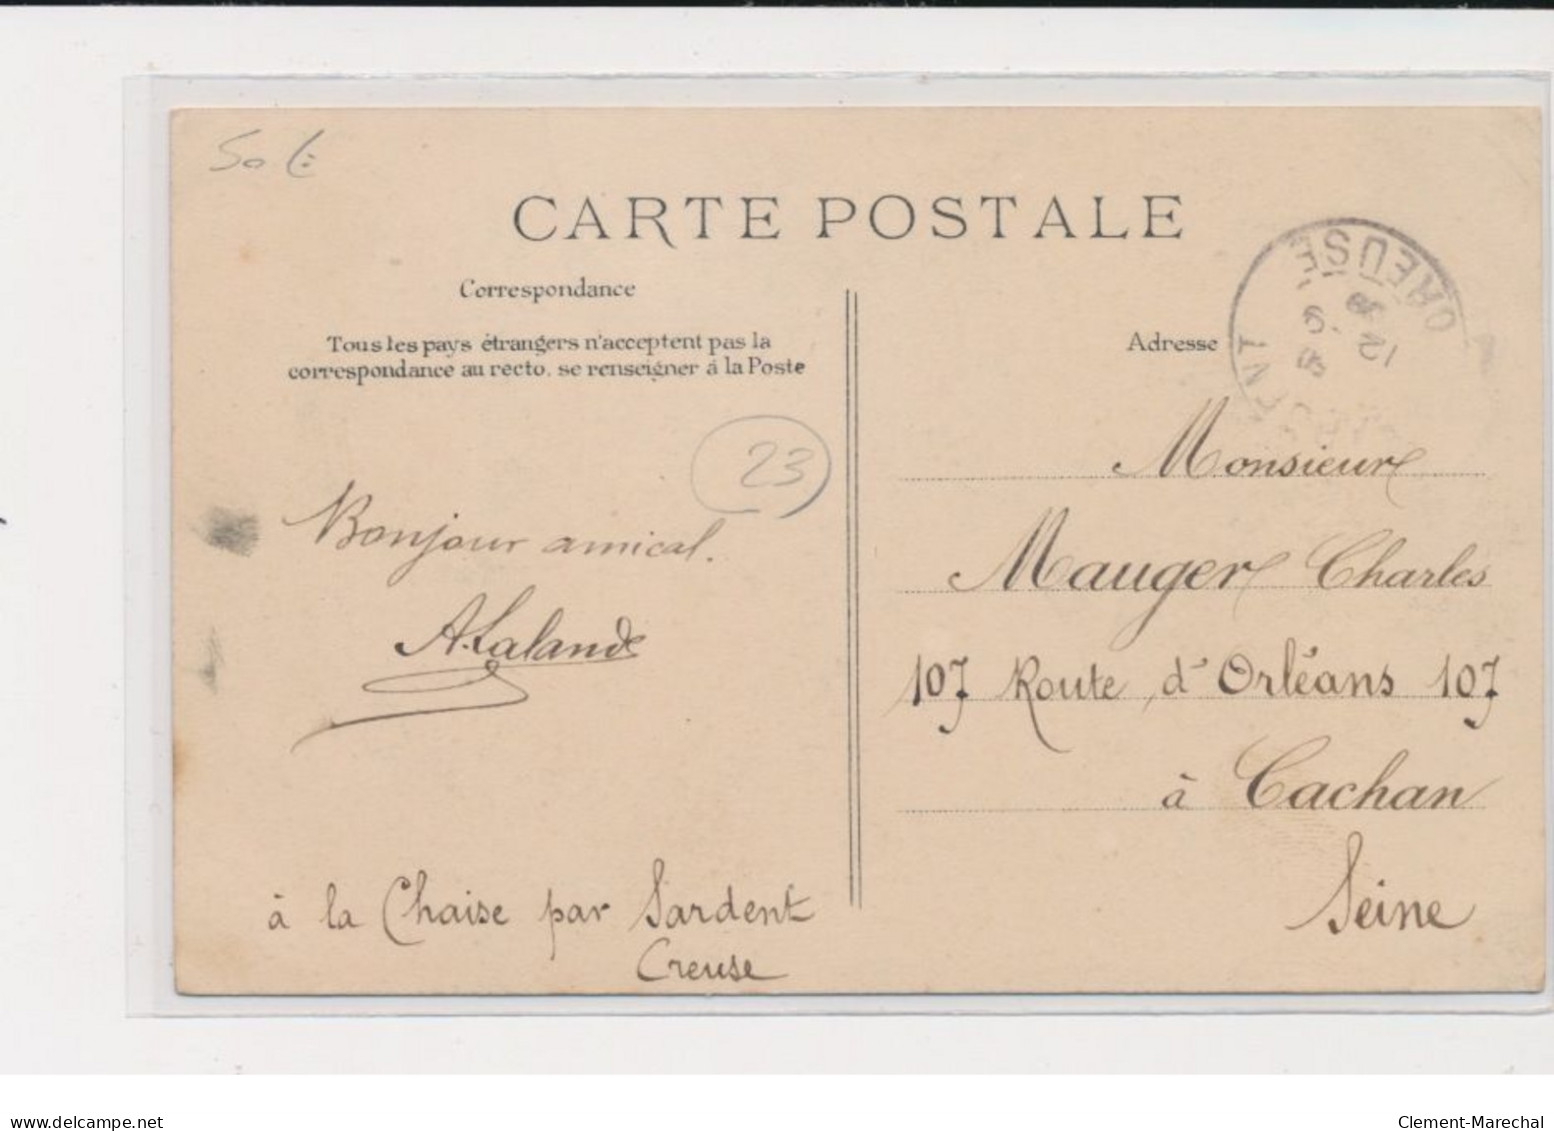 50 €
CARTE POSTALE
Correspondance
Tous les pays étrangers n'acceptent pas la
correspondance au recto, se renseigner à la Poste
23
Bonjour amical.
A. Lalande
à la Chaise par Sardent
Creuse
Adresse
CREUSE
Monsieur
Mauger Charles
107 Route d'Orléans 107
à Cachan
Seine
www.delcampe.net
Clement-Marechal